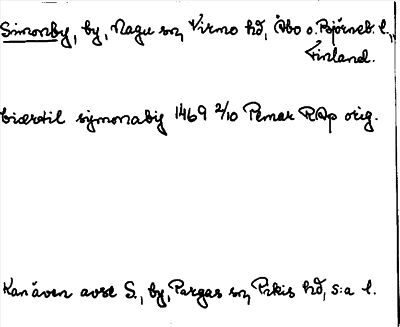 Simonby, by, Nagu sn, Virmo hd, Åbo o. Björneb. l.,
Finland.
biærdtil symonaby 1469 2/10 Pemar RAp orig.
Kan även avse S., by, Pargas sn, Pikis hd, s:a l.